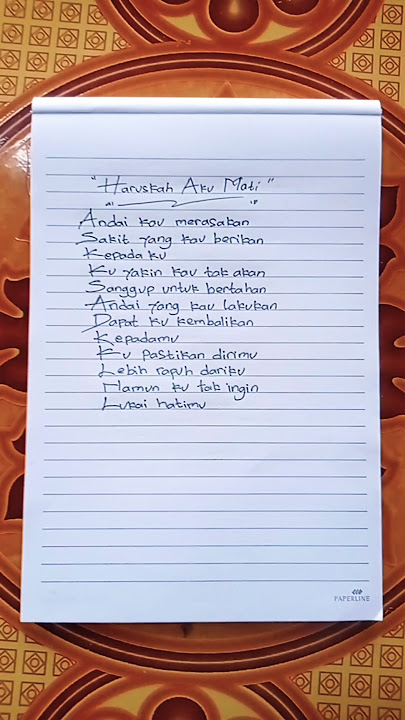 "Haruskah Aku Mati"
Andai kau merasakan
Sakit yang kau berikan
Kepada ku
Ku yakin kau tak akan
Sanggup untuk bertahan
Andai yang kau lakukan
Dapat ku kembalikan
Kepadamu
Ku pastikan dirimu
Lebih rapuh dariku
Namun ku tak ingin
Lukai hatimu
PAPERLINE